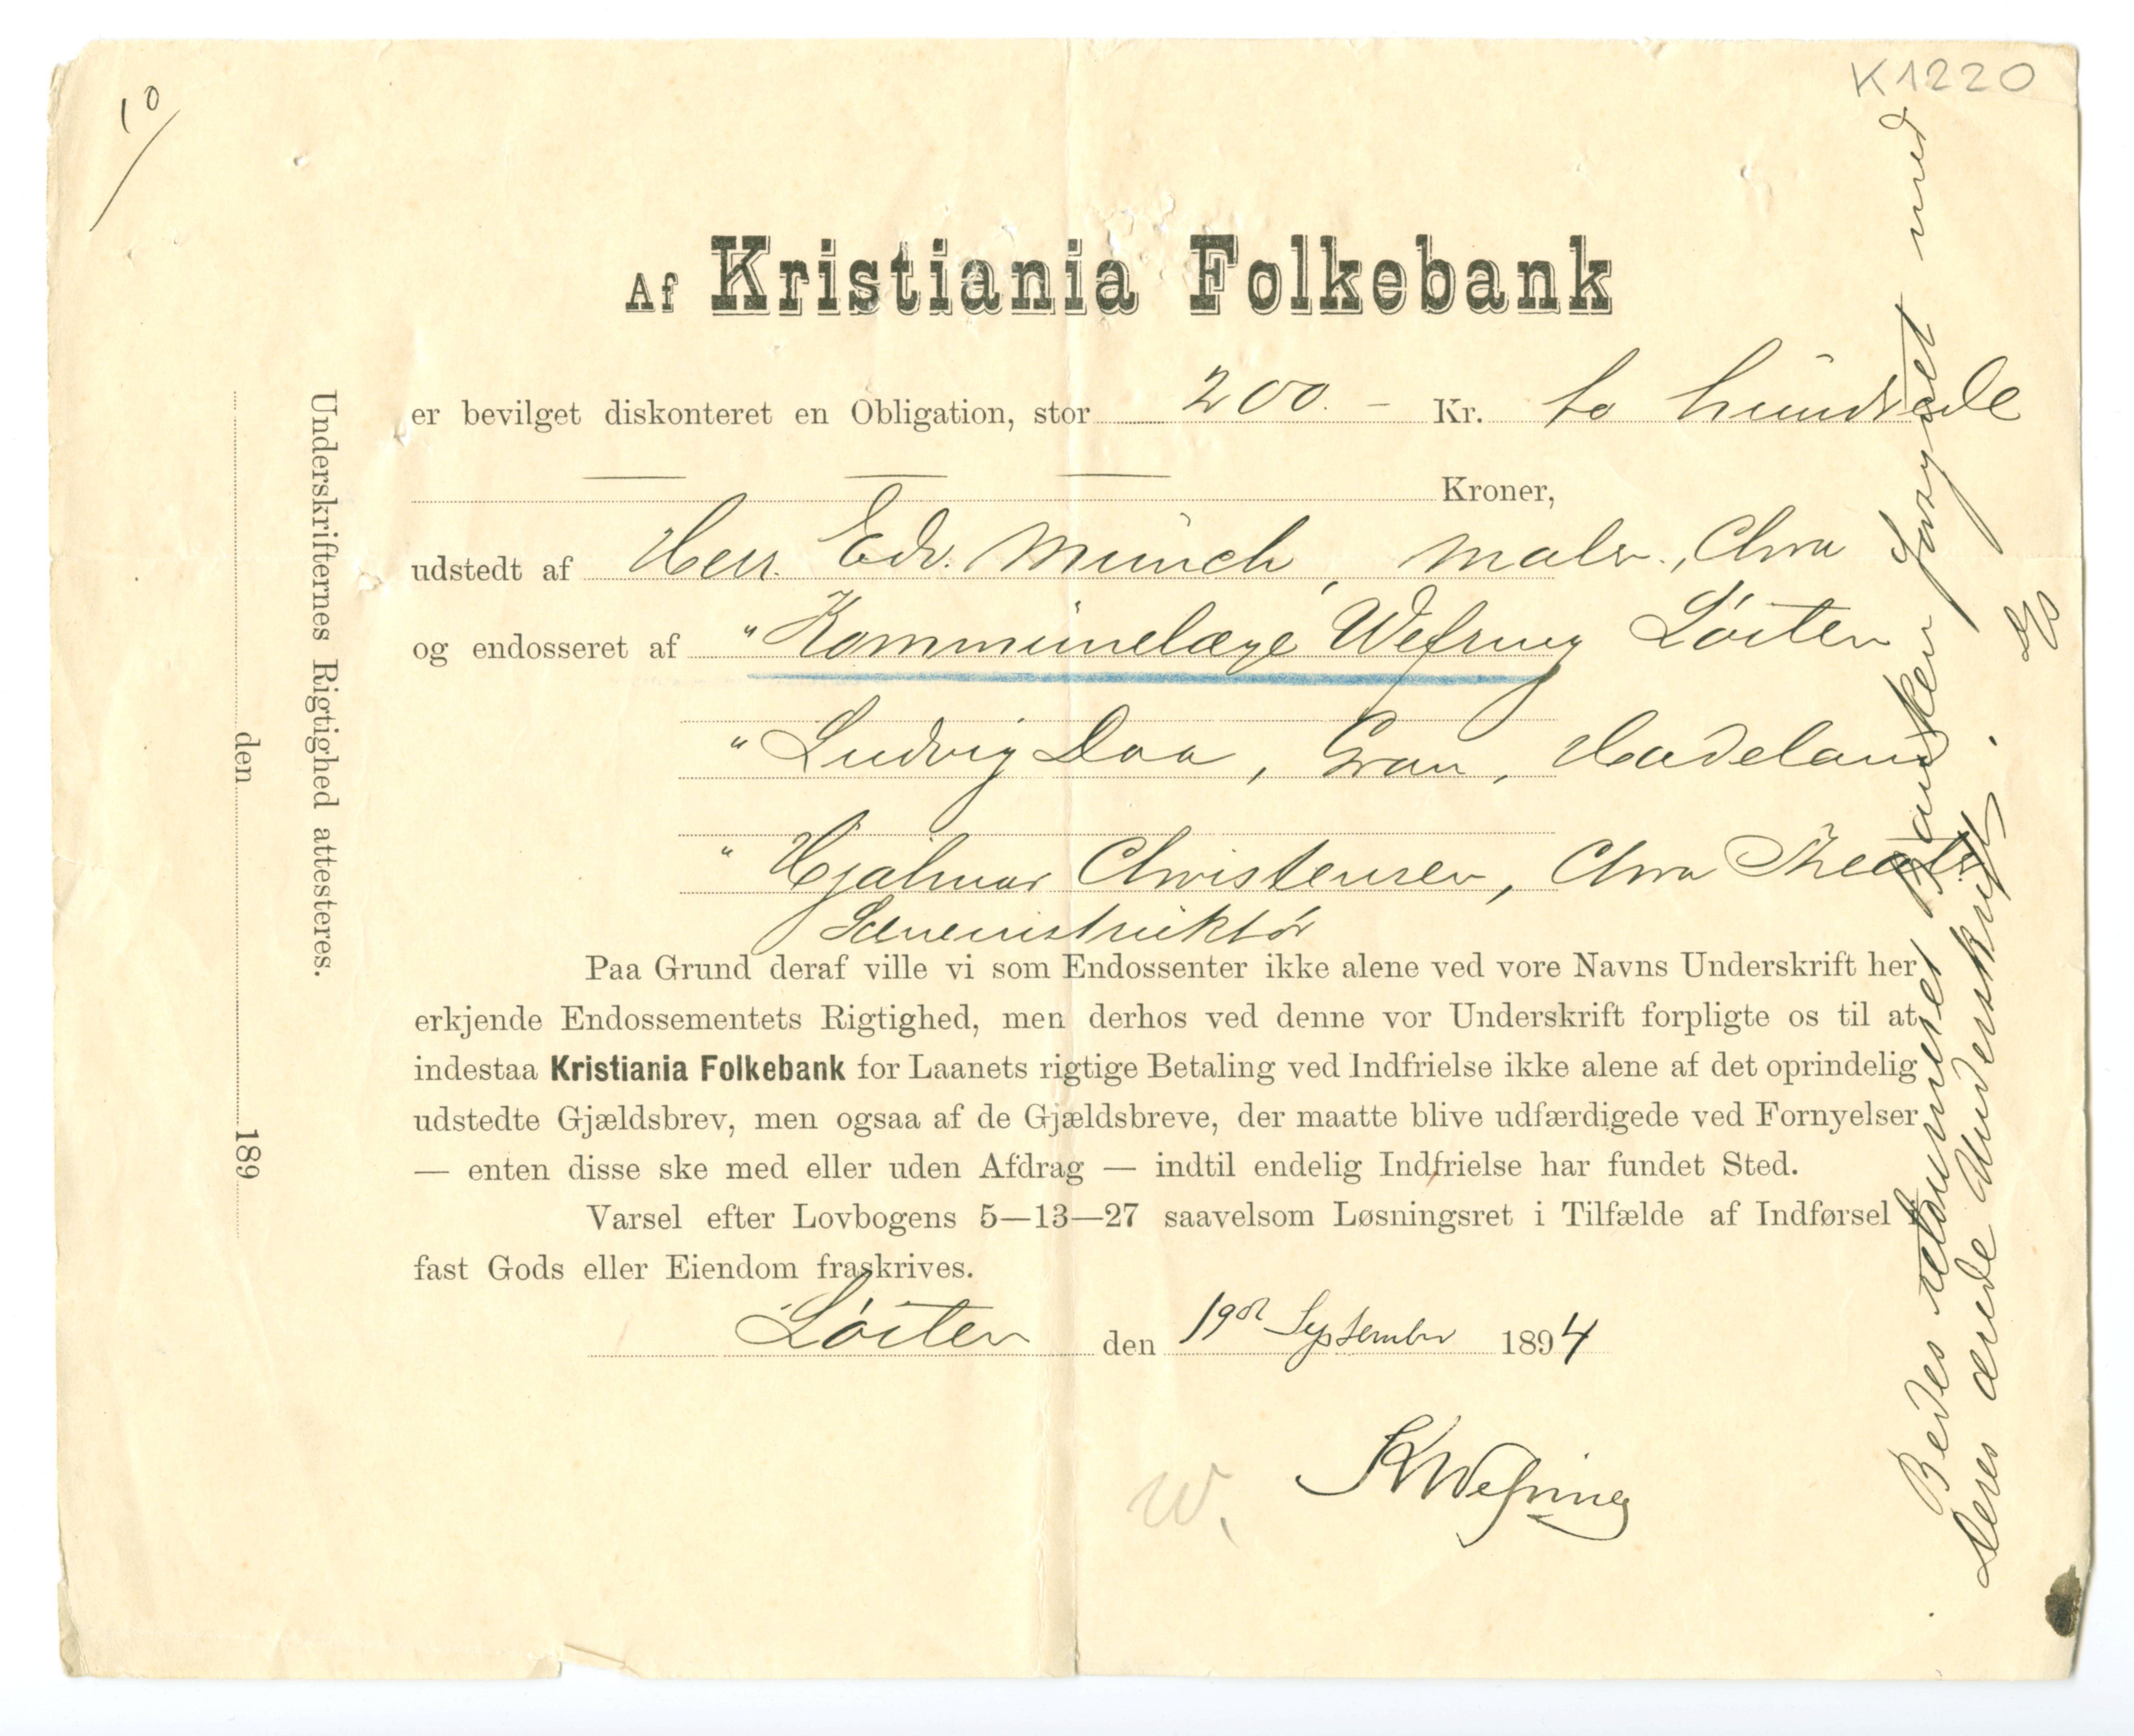 K1220
10
Af Kristiania Folkebank
er bevilget diskonteret en Obligation, stor 200.- Kr. to hundrede
Kroner,
udstedt af Herr. Edv. Munch, maler., Chra
og endosseret af " Kommunelæge Wefring Löiten
" Ludvig Daa, Gran, Hadeland
" Hjalmar Christensen, Chra Theater
Sceneinstruktör
Paa Grund deraf ville vi som Endossenter ikke alene ved vore Navns Underskrift her
erkjende Endossementets Rigtighed, men derhos ved denne vor Underskrift forpligte os til at
indestaa Kristiania Folkebank for Laanets rigtige Betaling ved Indfrielse ikke alene af det oprindelig
udstedte Gjældsbrev, men ogsaa af de Gjældsbreve, der maatte blive udfærdigede ved Fornyelser
— enten disse ske med eller uden Afdrag — indtil endelig Indfrielse har fundet Sted.
Varsel efter Lovbogens 5—13—27 saavelsom Løsningsret i Tilfælde af Indførsel i
fast Gods eller Eiendom fraskrives.
Löiten den 19de September 1894
KWefring
W.
Underskrifternes Rigtighed attesteres.
den 189
Bedes returneret Banken forsynet med
Deres ærede Underskrift.